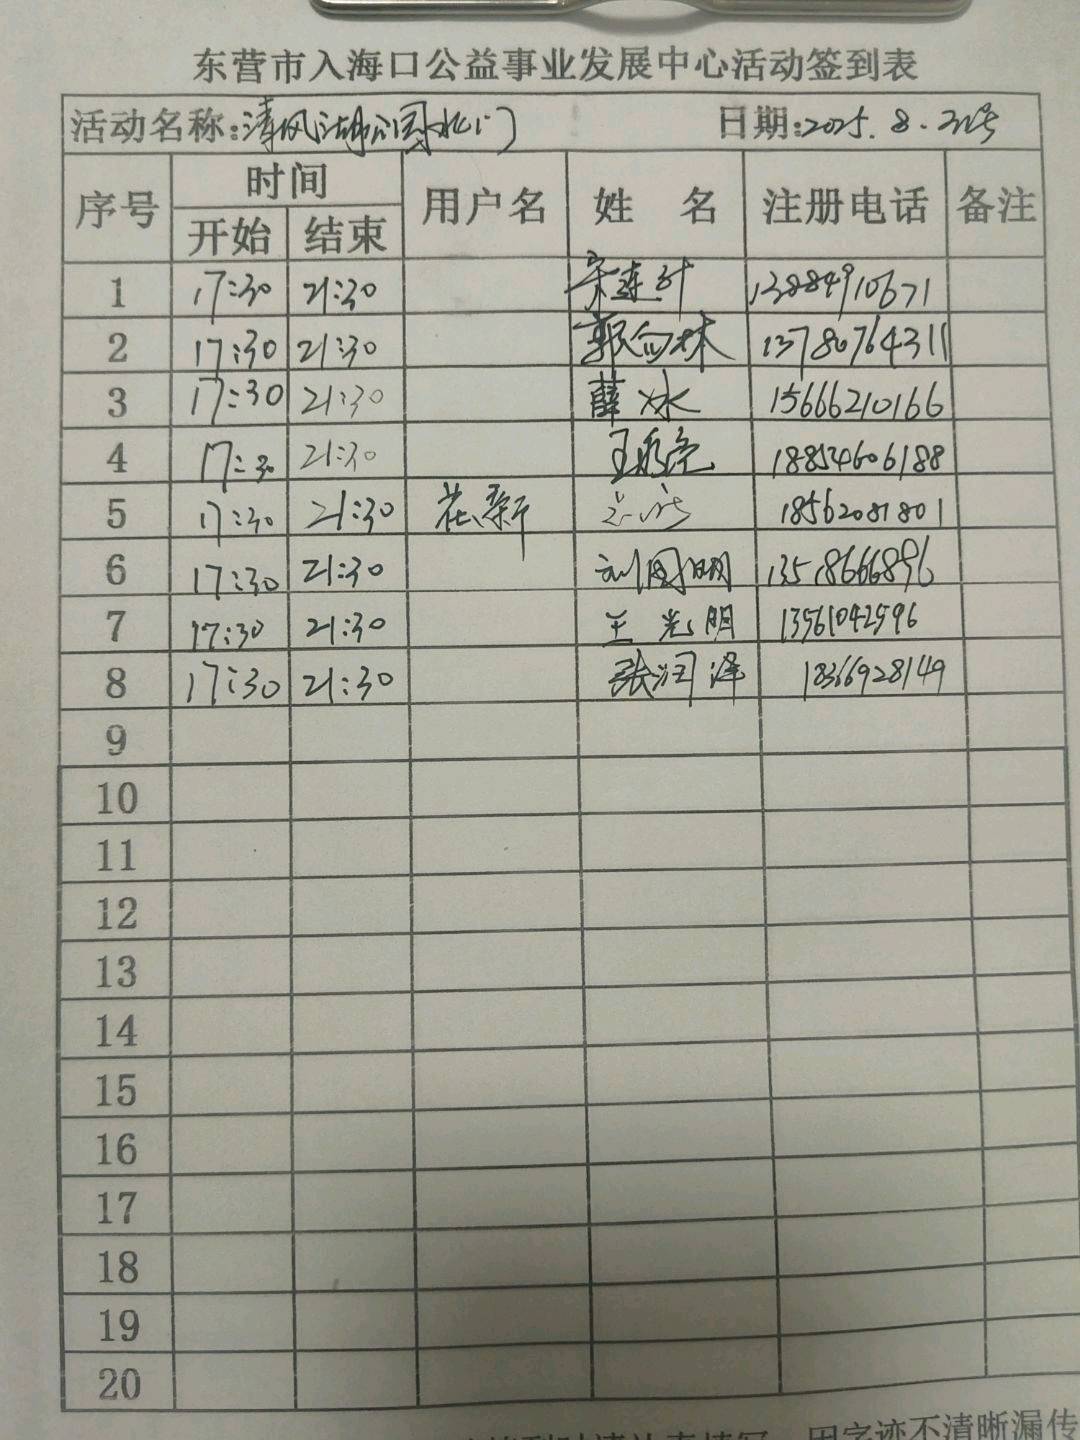 东营市入海口公益事业发展中心活动签到表
活动名称:清风湖公园北门 日期:2025.8.
序号 时间 用户名 姓 名 注册电话 备注
开始 结束
1 17:30 21:30 宋连 13884910671
2 17:30 21:30 郭向林 13780764311
3 17:30 21:30 薛冰 15666210166
4 17:30 21:30 王 亮 18854606188
5 17:30 21:30 花 新 18562081801
6 17:30 21:30 刘国明 13518666896
7 17:30 21:30 王光明 13561042596
8 17:30 21:30 张润泽 18366928149
9
10
11
12
13
14
15
16
17
18
19
20
因字迹不清晰漏传